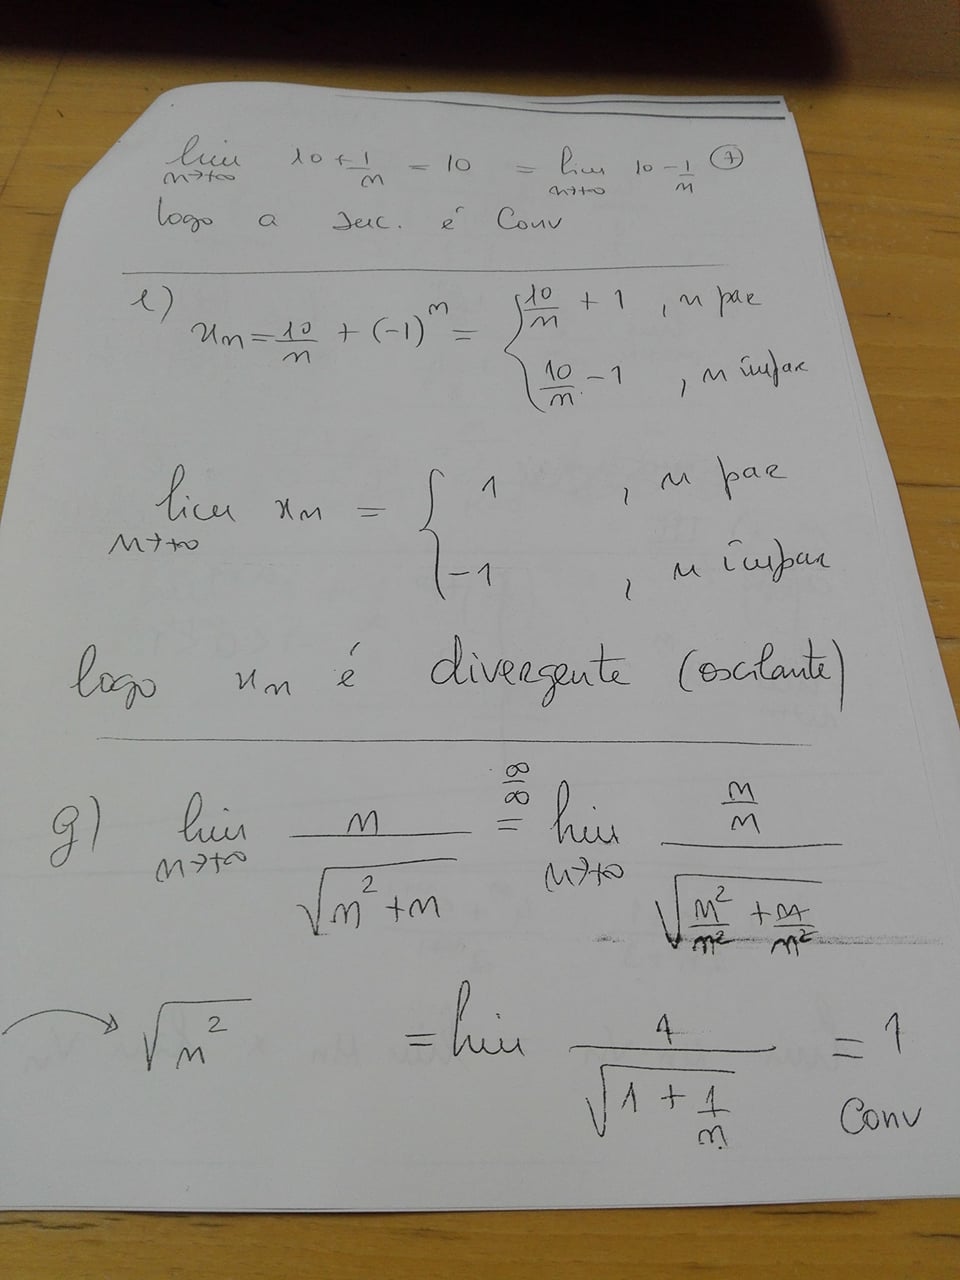 lim n→+∞ 10 + 1/n = 10 = lim n→+∞ 10 - 1/n ⑦
logo a suc. é Conv
e) xn = 10/n + (-1)^n = { 10/n + 1 , n par
10/n - 1 , n ímpar
lim n→+∞ xn = { 1 , n par
-1 , n ímpar
logo xn é divergente (oscilante)
g) lim n→+∞ n/√(n² + n) =^(∞/∞) lim n→+∞ (n/n)/√(n²/n² + n/n²)
→ √n² = lim 1/√(1 + 1/n) = 1
Conv